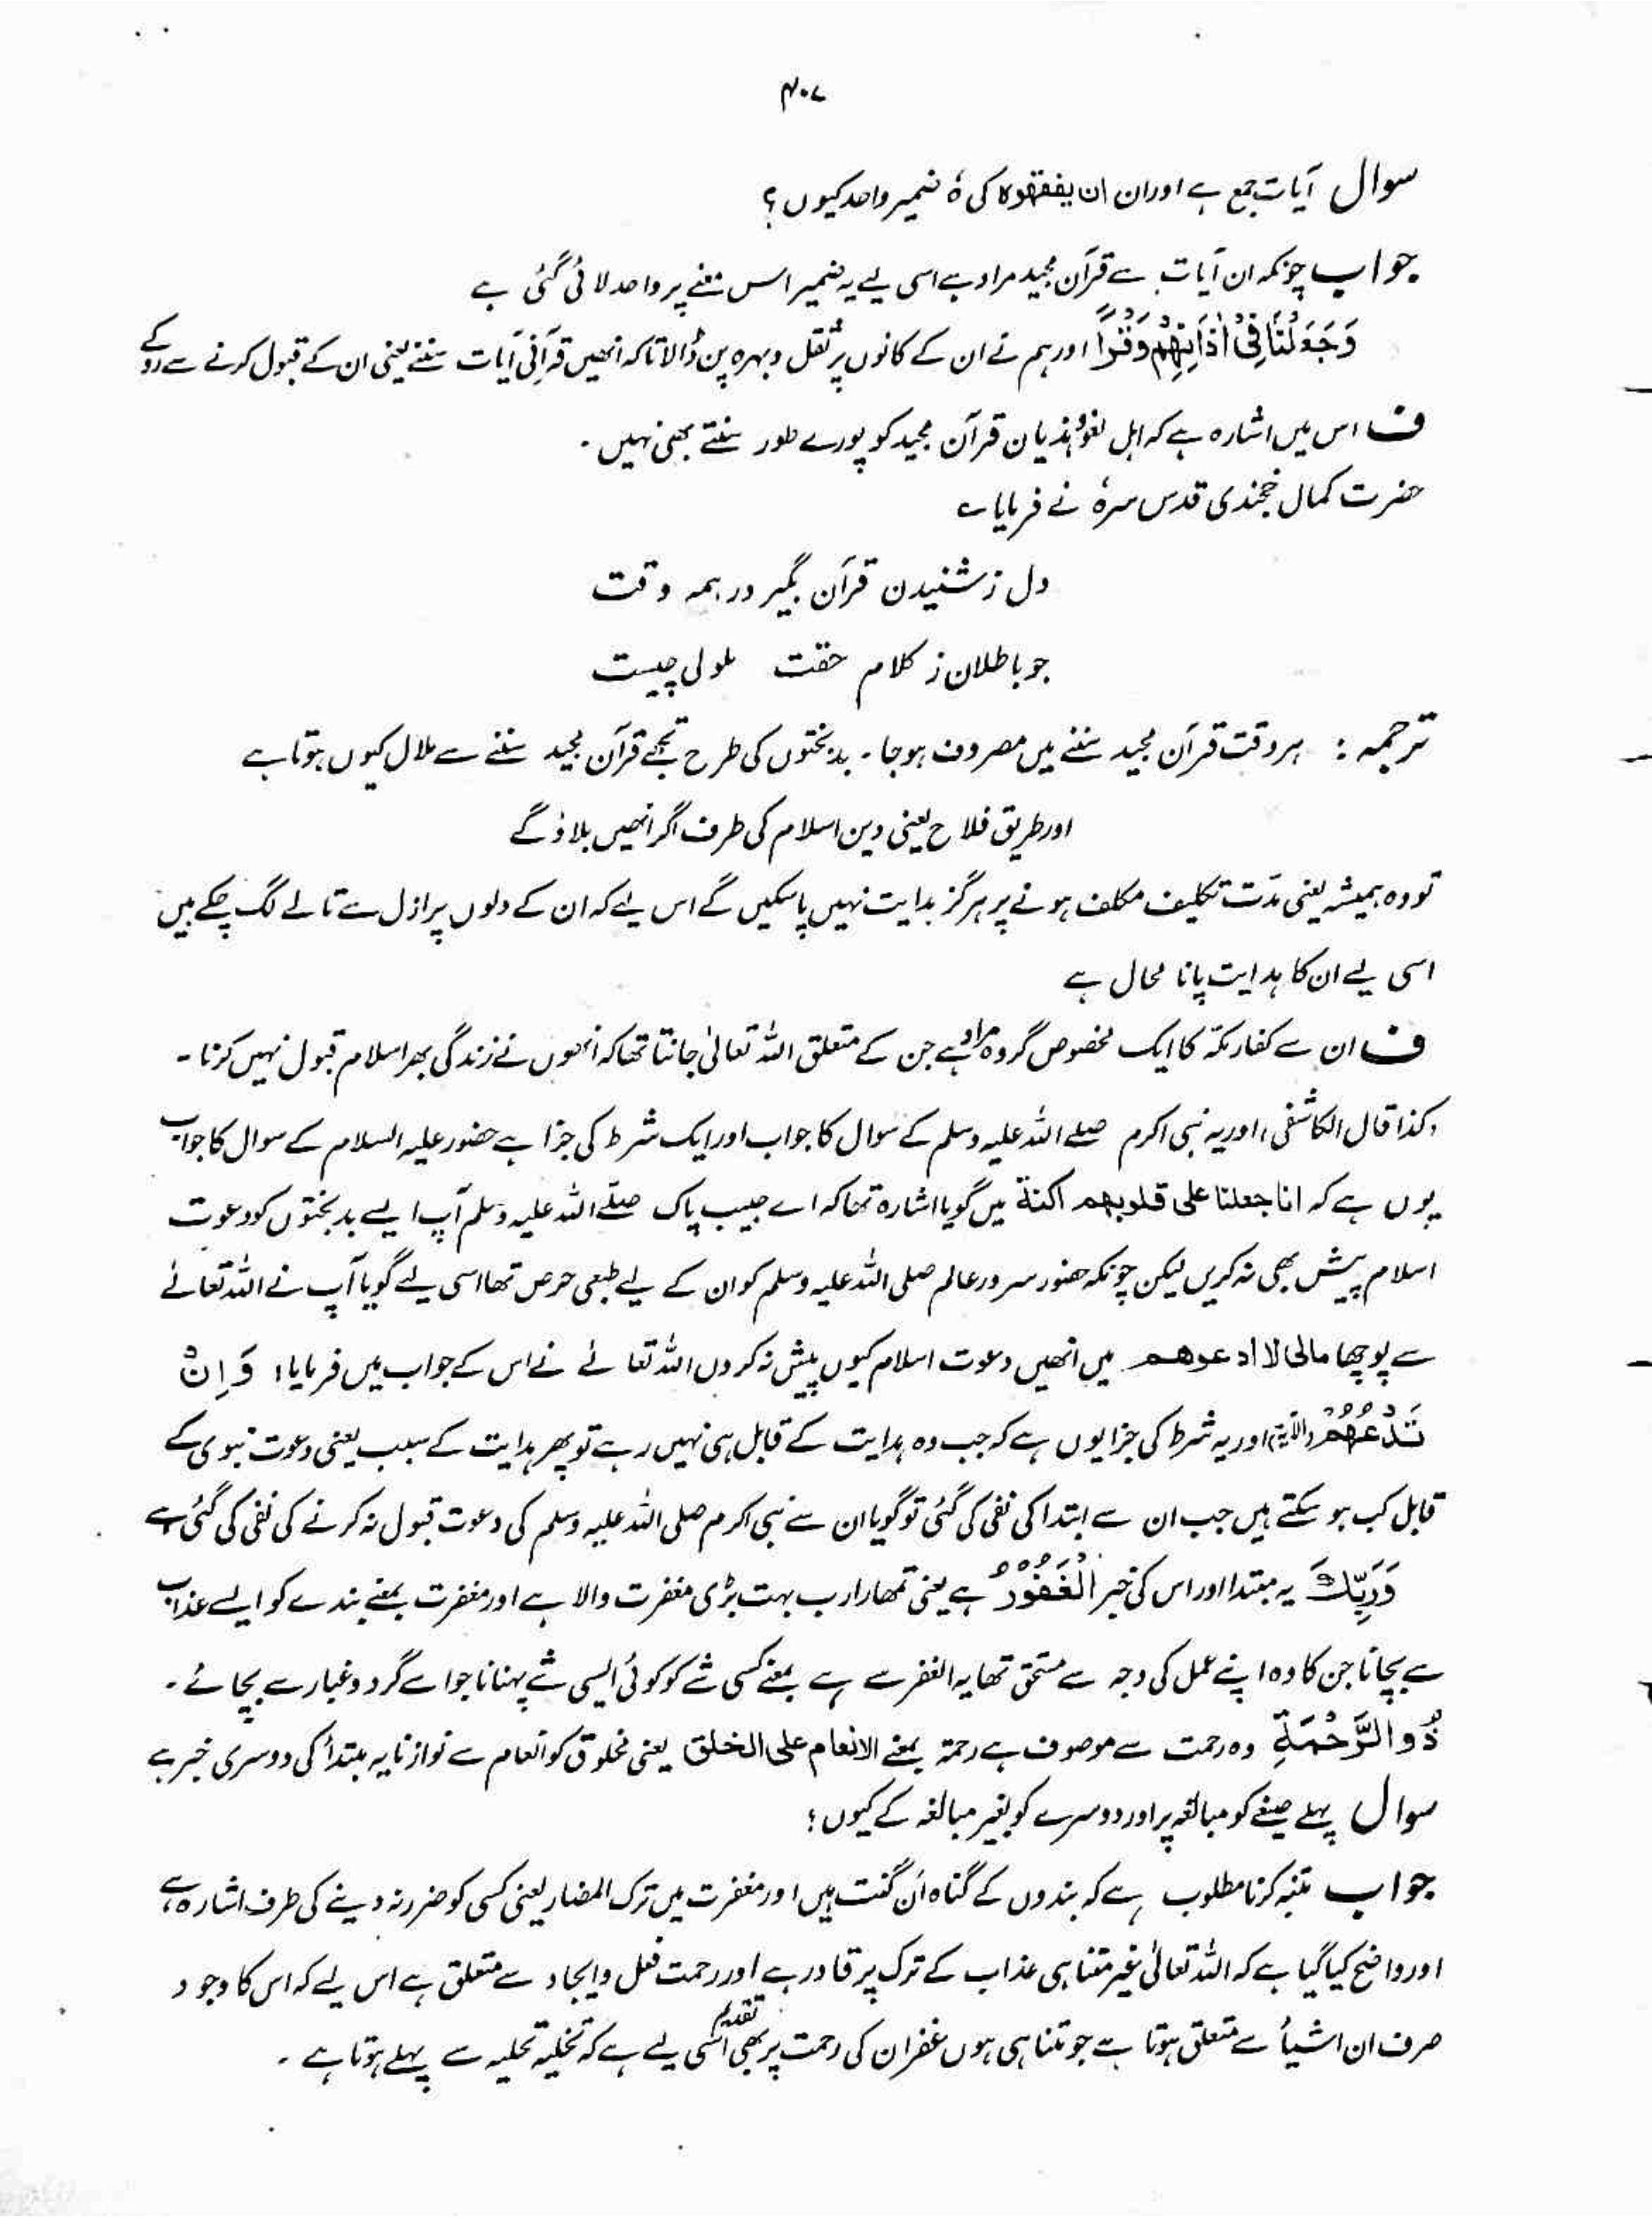 ۴۰۷
سوال آیات جمع ہے اور ان ان یفقهوہ کی ہٗ ضمیر واحد کیوں؟
جواب چونکہ ان آیات سے قرآن مجید مراد ہے اسی لیے یہ ضمیر اس معنے پر واحد لائی گئی ہے
وَجَعَلْنَا فِیْ اٰذَانِهِمْ وَقْرًا اور ہم نے ان کے کانوں پر ثقل و بہرہ پن ڈالا تاکہ انھیں قرآنی آیات سننے یعنی ان کے قبول کرنے سے روکے
ف اس میں اشارہ ہے کہ اہل لغو و ہذیان قرآن مجید کو پورے طور سنتے بھی نہیں ۔
حضرت کمال خجندی قدس سرہٗ نے فرمایا ؎
دل ز شنیدن قرآن بگیر در ہمہ وقت
جو باطلان ز کلام حقت ملولی چیست
ترجمہ : ہر وقت قرآن مجید سننے میں مصروف ہوجا ۔ بدبختوں کی طرح تجھے قرآن مجید سننے سے ملال کیوں ہوتا ہے
اور طریق فلاح یعنی دین اسلام کی طرف اگر انھیں بلاؤ گے
تو وہ ہمیشہ یعنی مدّت تکلیف مکلف ہونے پر ہرگز ہدایت نہیں پاسکیں گے اس لیے کہ ان کے دلوں پر ازل سے تالے لگ چکے ہیں
اسی لیے ان کا ہدایت پانا محال ہے
ف ان سے کفار مکّہ کا ایک مخصوص گروہ مراد ہے جن کے متعلق اللہ تعالیٰ جانتا تھا کہ انھوں نے زندگی بھر اسلام قبول نہیں کرنا ۔
(کذا قال الکاشفی) اور یہ نبی اکرم صلے اللہ علیہ وسلم کے سوال کا جواب اور ایک شرط کی جزا ہے حضور علیہ السلام کے سوال کا جواب
یوں ہے کہ انا جعلنا علی قلوبهم اکنة میں گویا اشارہ تھا کہ اے حبیب پاک صلّے اللہ علیہ وسلم آپ ایسے بدبختوں کو دعوت
اسلام پیش بھی نہ کریں لیکن چونکہ حضور سرور عالم صلی اللہ علیہ وسلم کو ان کے لیے طبعی حرص تھا اسی لیے گویا آپ نے اللہ تعالےٰ
سے پوچھا مالی لا ادعوهم میں انھیں دعوت اسلام کیوں پیش نہ کروں اللہ تعالےٰ نے اس کے جواب میں فرمایا : وَ اِنْ
تَدْعُهُمْ (الآیۃ) اور یہ شرط کی جزا یوں ہے کہ جب وہ ہدایت کے قابل ہی نہیں رہے تو پھر ہدایت کے سبب یعنی دعوت نبوی کے
قابل کب ہو سکتے ہیں جب ان سے ابتدا کی نفی کی گئی تو گویا ان سے نبی اکرم صلی اللہ علیہ وسلم کی دعوت قبول نہ کرنے کی نفی کی گئی ہے
وَرَبُّكَ یہ مبتدا اور اس کی خبر الْغَفُوْرُ ہے یعنی تمھارا رب بہت بڑی مغفرت والا ہے اور مغفرت بمعنے بندے کو ایسے عذاب
سے بچانا جن کا وہ اپنے عمل کی وجہ سے مستحق تھا یہ الغفر سے ہے بمعنے کسی شے کو کوئی ایسی شے پہنانا جو اسے گرد و غبار سے بچائے ۔
ذُو الرَّحْمَةِ وہ رحمت سے موصوف ہے رحمۃ بمعنے الانعام علی الخلق یعنی مخلوق کو انعام سے نوازنا یہ مبتدأ کی دوسری خبر ہے
سوال پہلے صیغے کو مبالغہ پر اور دوسرے کو بغیر مبالغہ کے کیوں ؟
جواب متنبہ کرنا مطلوب ہے کہ بندوں کے گناہ اَن گنت ہیں اور مغفرت میں ترک المضار یعنی کسی کو ضرر نہ دینے کی طرف اشارہ ہے
اور واضح کیا گیا ہے کہ اللہ تعالیٰ غیر متناہی عذاب کے ترک پر قادر ہے اور رحمت فعل و ایجاد سے متعلق ہے اس لیے کہ اس کا وجود
صرف ان اشیأ سے متعلق ہوتا ہے جو متناہی ہوں غفران کی رحمت پر تقدیم بھی اسی لیے ہے کہ تخلیہ تحلیہ سے پہلے ہوتا ہے ۔